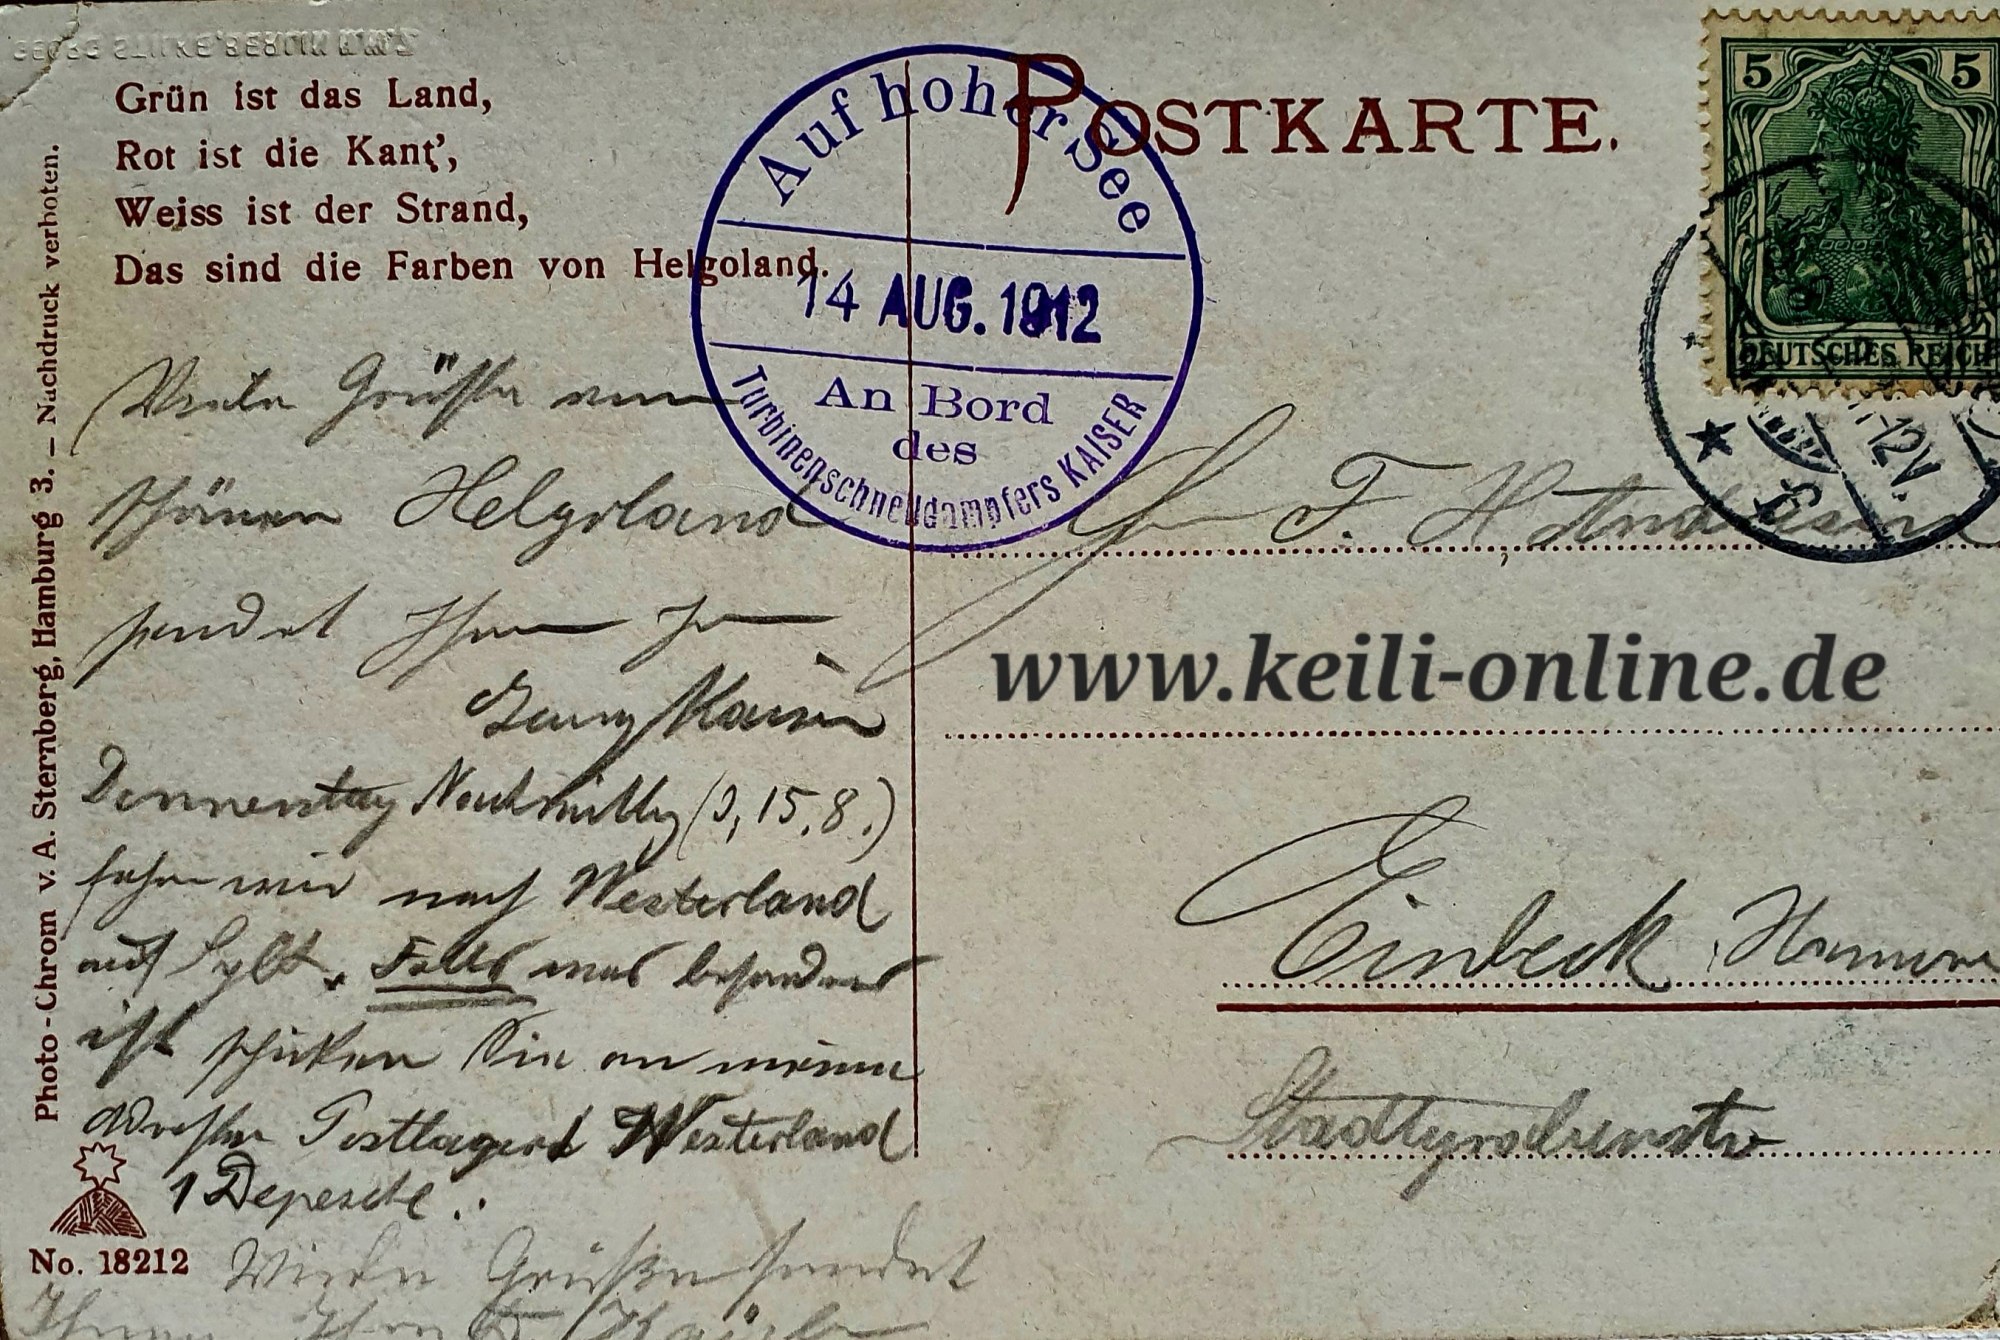 GEORG STILKE BERLIN N.W.7
Grün ist das Land,
Rot ist die Kant',
Weiss ist der Strand,
Das sind die Farben von Helgoland.
POSTKARTE.
5 5
DEUTSCHES REICH
Auf hoher See
14 AUG. 1912
An Bord
des
Turbinenschnelldampfers KAISER
12V.
Photo-Chrom v. A. Sternberg, Hamburg 3. – Nachdruck verboten.
Viele Grüße vom
schönen Helgoland
sendet Ihnen
Donnerstag Nachmittag (d. 15.8.)
fahren wir nach Westerland
auf Sylt. Falls was besonderes
ist schicken Sie an meine
Adresse Postlagernd Westerland
1 Depesche.
Viele Grüße sendet
Ihnen
F. H.
www.keili-online.de
Einbeck, Hannover
No. 18212